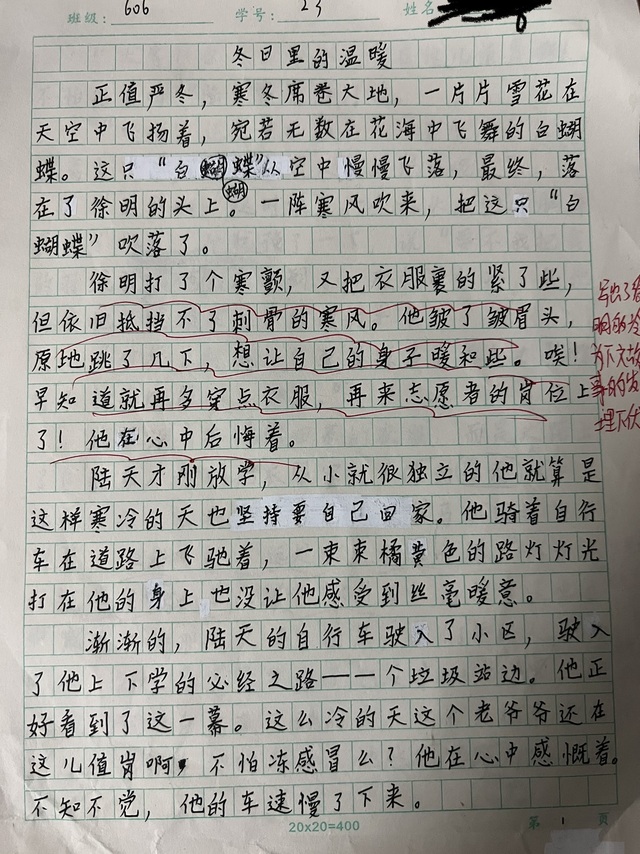 班级: 606 学号: 23 姓名
冬日里的温暖
正值严冬，寒冬席卷大地，一片片雪花在
天空中飞扬着，宛若无数在花海中飞舞的白蝴
蝶。这只“白蝴蝶”从空中慢慢飞落，最终，落
在了徐明的头上。一阵寒风吹来，把这只“白
蝴蝶”吹落了。
徐明打了个寒颤，又把衣服裹的紧了些，
但依旧抵挡不了刺骨的寒风。他皱了皱眉头，
原地跳了几下，想让自己的身子暖和些。唉！
早知道就再多穿点衣服，再来志愿者的岗位上
了！他在心中后悔着。
陆天才刚放学，从小就很独立的他就算是
这样寒冷的天也坚持要自己回家。他骑着自行
车在道路上飞驰着，一束束橘黄色的路灯灯光
打在他的身上也没让他感受到丝毫暖意。
渐渐的，陆天的自行车驶入了小区，驶入
了他上下学的必经之路——一个垃圾站边。他正
好看到了这一幕。这么冷的天这个老爷爷还在
这儿值岗啊，不怕冻感冒么？他在心中感慨着。
不知不觉，他的车速慢了下来。
20×20=400
第 1 页
写出了徐
为下文故
事的发
埋下伏